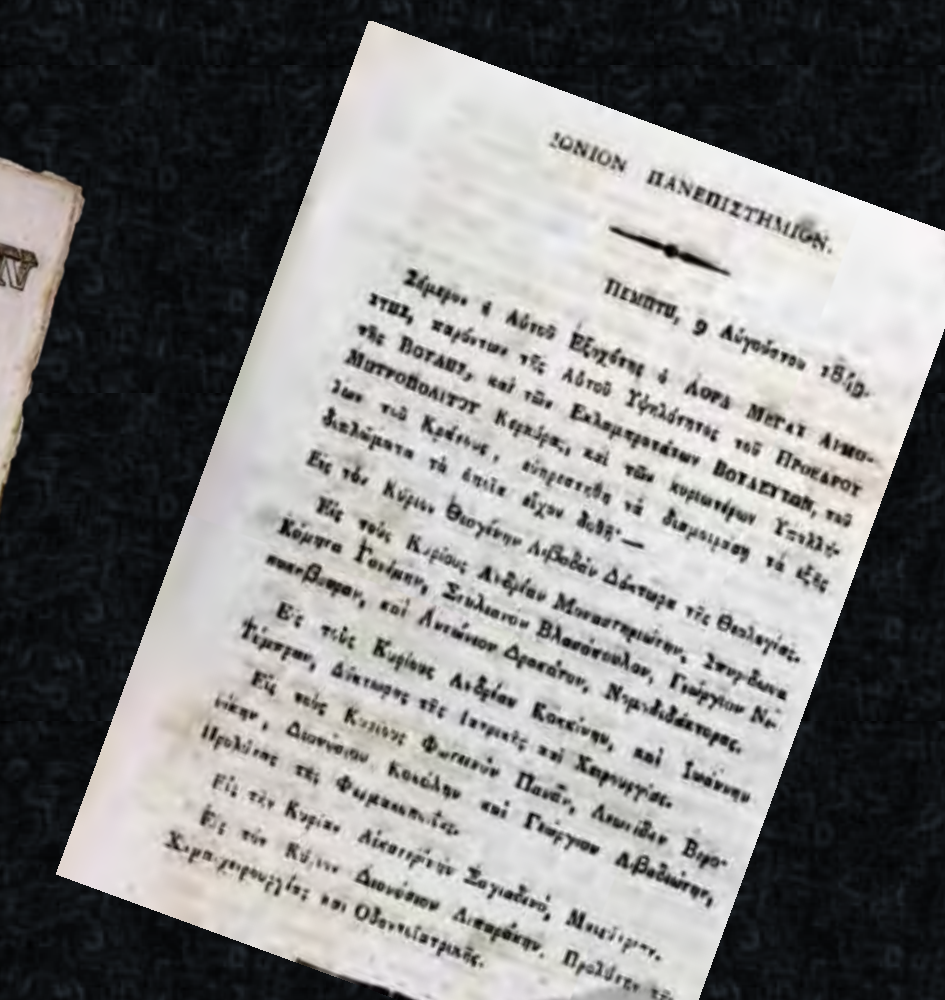 ΙΟΝΙΟΝ ΠΑΝΕΠΙΣΤΗΜΙΟΝ.
ΠΕΜΠΤΗ, 9 Αὐγούστου
Σήμερον ὁ Αὐτοῦ Ἐξοχότης ὁ ΛΟΡΔ ΜΕΓΑΣ ΑΡΜΟ-
ΣΤΗΣ, παρόντων τῆς Αὐτοῦ Ὑψηλότητος τοῦ ΠΡΟΕΔΡΟΥ
τῆς ΒΟΥΛΗΣ, καὶ τῶν Ἐκλαμπροτάτων ΒΟΥΛΕΥΤΩΝ, τοῦ
ΜΗΤΡΟΠΟΛΙΤΟΥ Κερκύρας, καὶ τῶν κυριωτέρων Ὑπαλλή-
λων τοῦ Κράτους, εὐηρεστήθη νὰ διαμοιράσῃ τὰ ἑξῆς
διπλώματα τὰ ὁποῖα εἶχον δοθῆ·—
Εἰς τὸν Κύριον Θεαγένην Λιβαδᾶν Δόκτωρα τῆς Θεολογίας.
Εἰς τοὺς Κυρίους Ἀνδρέαν Μοναστηριώτην, Σπυρίδωνα
Κόμητα Στυλιανὸν Βλασόπουλον, Γεώργιον Νε-
καὶ Ἀντώνιον Δρακάτον, Νομοδιδάκτορας.
Εἰς τοὺς Κυρίους Ἀνδρέαν Κοκκίνην, καὶ Ἰωάννην
Τέμπραν, Δόκτορας τῆς Ἰατρικῆς καὶ Χειρουργίας.
Εἰς τοὺς Κυρίους Φωτεινὸν Πανᾶν, Λεωνίδαν Βερο-
νίκην, Διονύσιον καὶ Γεώργιον Λιβαδιώτην,
Προλύτας τῆς Φαρμακευτικῆς.
Εἰς τὴν Κυρίαν Αἰκατερίνην Μαιεύτριαν.
Εἰς τὸν Κύριον Διονύσιον Προλύτην τῆς
καὶ Ὀδοντιατρικῆς.